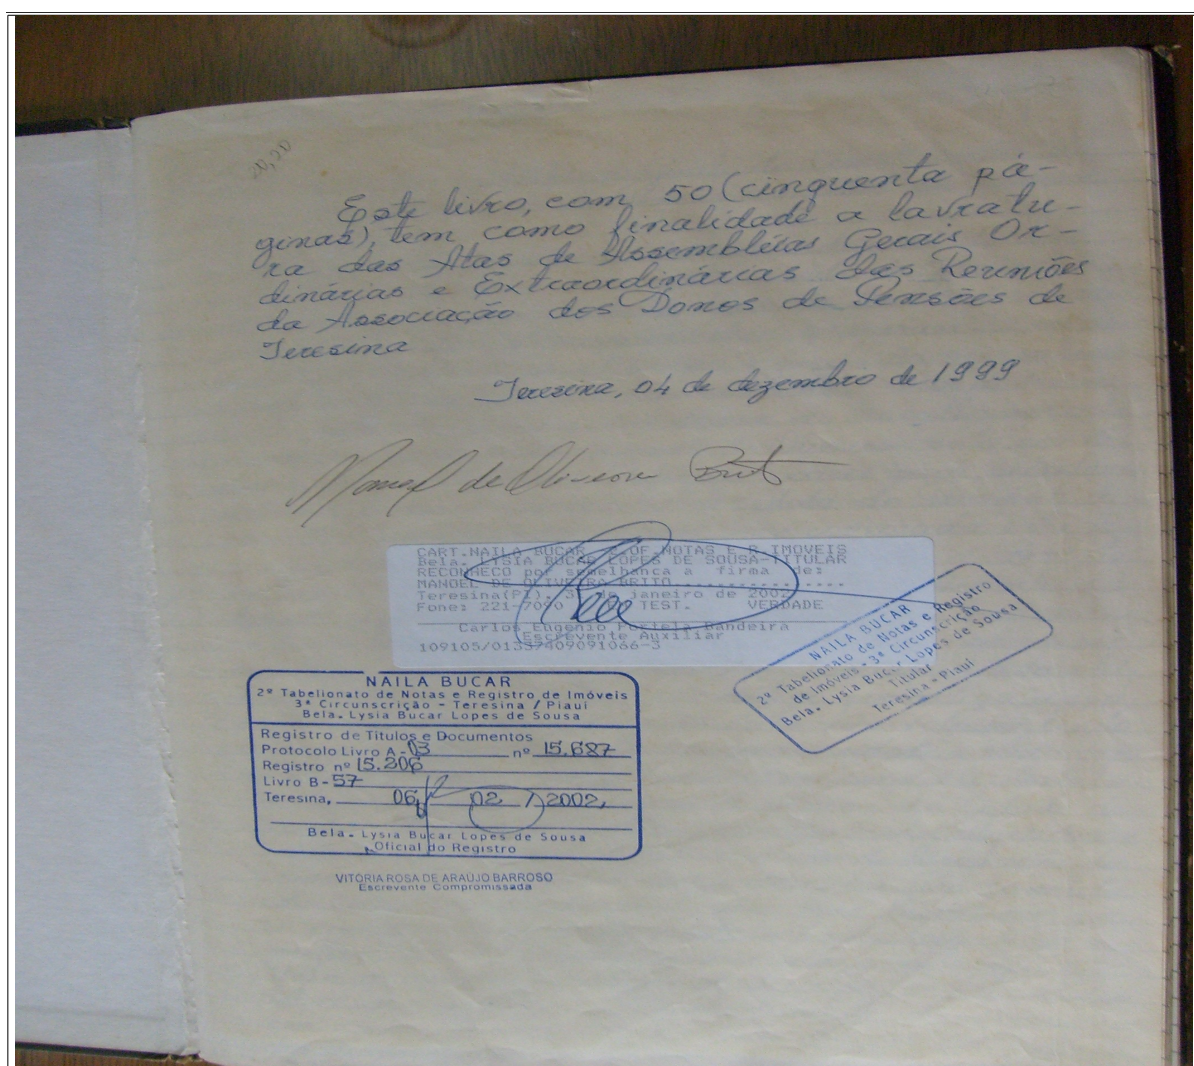 20,20
Este livro, com 50 (cinquenta pá-
ginas), tem como finalidade a lavratu-
ra das Atas de Assembléias Gerais Or-
dinárias e Extraordinárias das Reuniões
da Associação dos Donos de Pensões de
Teresina
Teresina, 04 de dezembro de 1999
Manoel de Oliveira Brito
CART.NAILA BUCAR OF.NOTAS E R.IMOVEIS
Bela. LYSIA BUCAR LOPES DE SOUSA-TITULAR
RECONHECO por semelhanca a firma de:
MANOEL DE OLIVEIRA BRITO................
Teresina(PI), de janeiro de 2002
Fone: 221-7090 TEST. VERDADE
Carlos Eugenio Portela Bandeira
Escrevente Auxiliar
109105/01337409091066-3
NAILA BUCAR
2º Tabelionato de Notas e Registro
de Imóveis - 3ª Circunscrição
Bela. Lysia Bucar Lopes de Sousa
Titular
Teresina - Piauí
NAILA BUCAR
2º Tabelionato de Notas e Registro de Imóveis
3ª Circunscrição - Teresina / Piauí
Bela. Lysia Bucar Lopes de Sousa
Registro de Títulos e Documentos
Protocolo Livro A - 03 nº 15.687
Registro nº 15.206
Livro B - 57
Teresina, 06 / 02 / 2002,
Bela. Lysia Bucar Lopes de Sousa
Oficial do Registro
VITÓRIA ROSA DE ARAÚJO BARROSO
Escrevente Compromissada